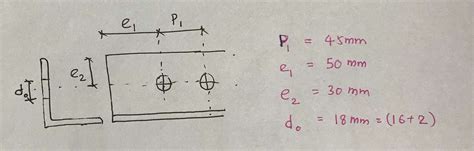 e₁ P₁
e₂
d₀
P₁ = 45mm
e₁ = 50 mm
e₂ = 30 mm
d₀ = 18mm = (16+2)